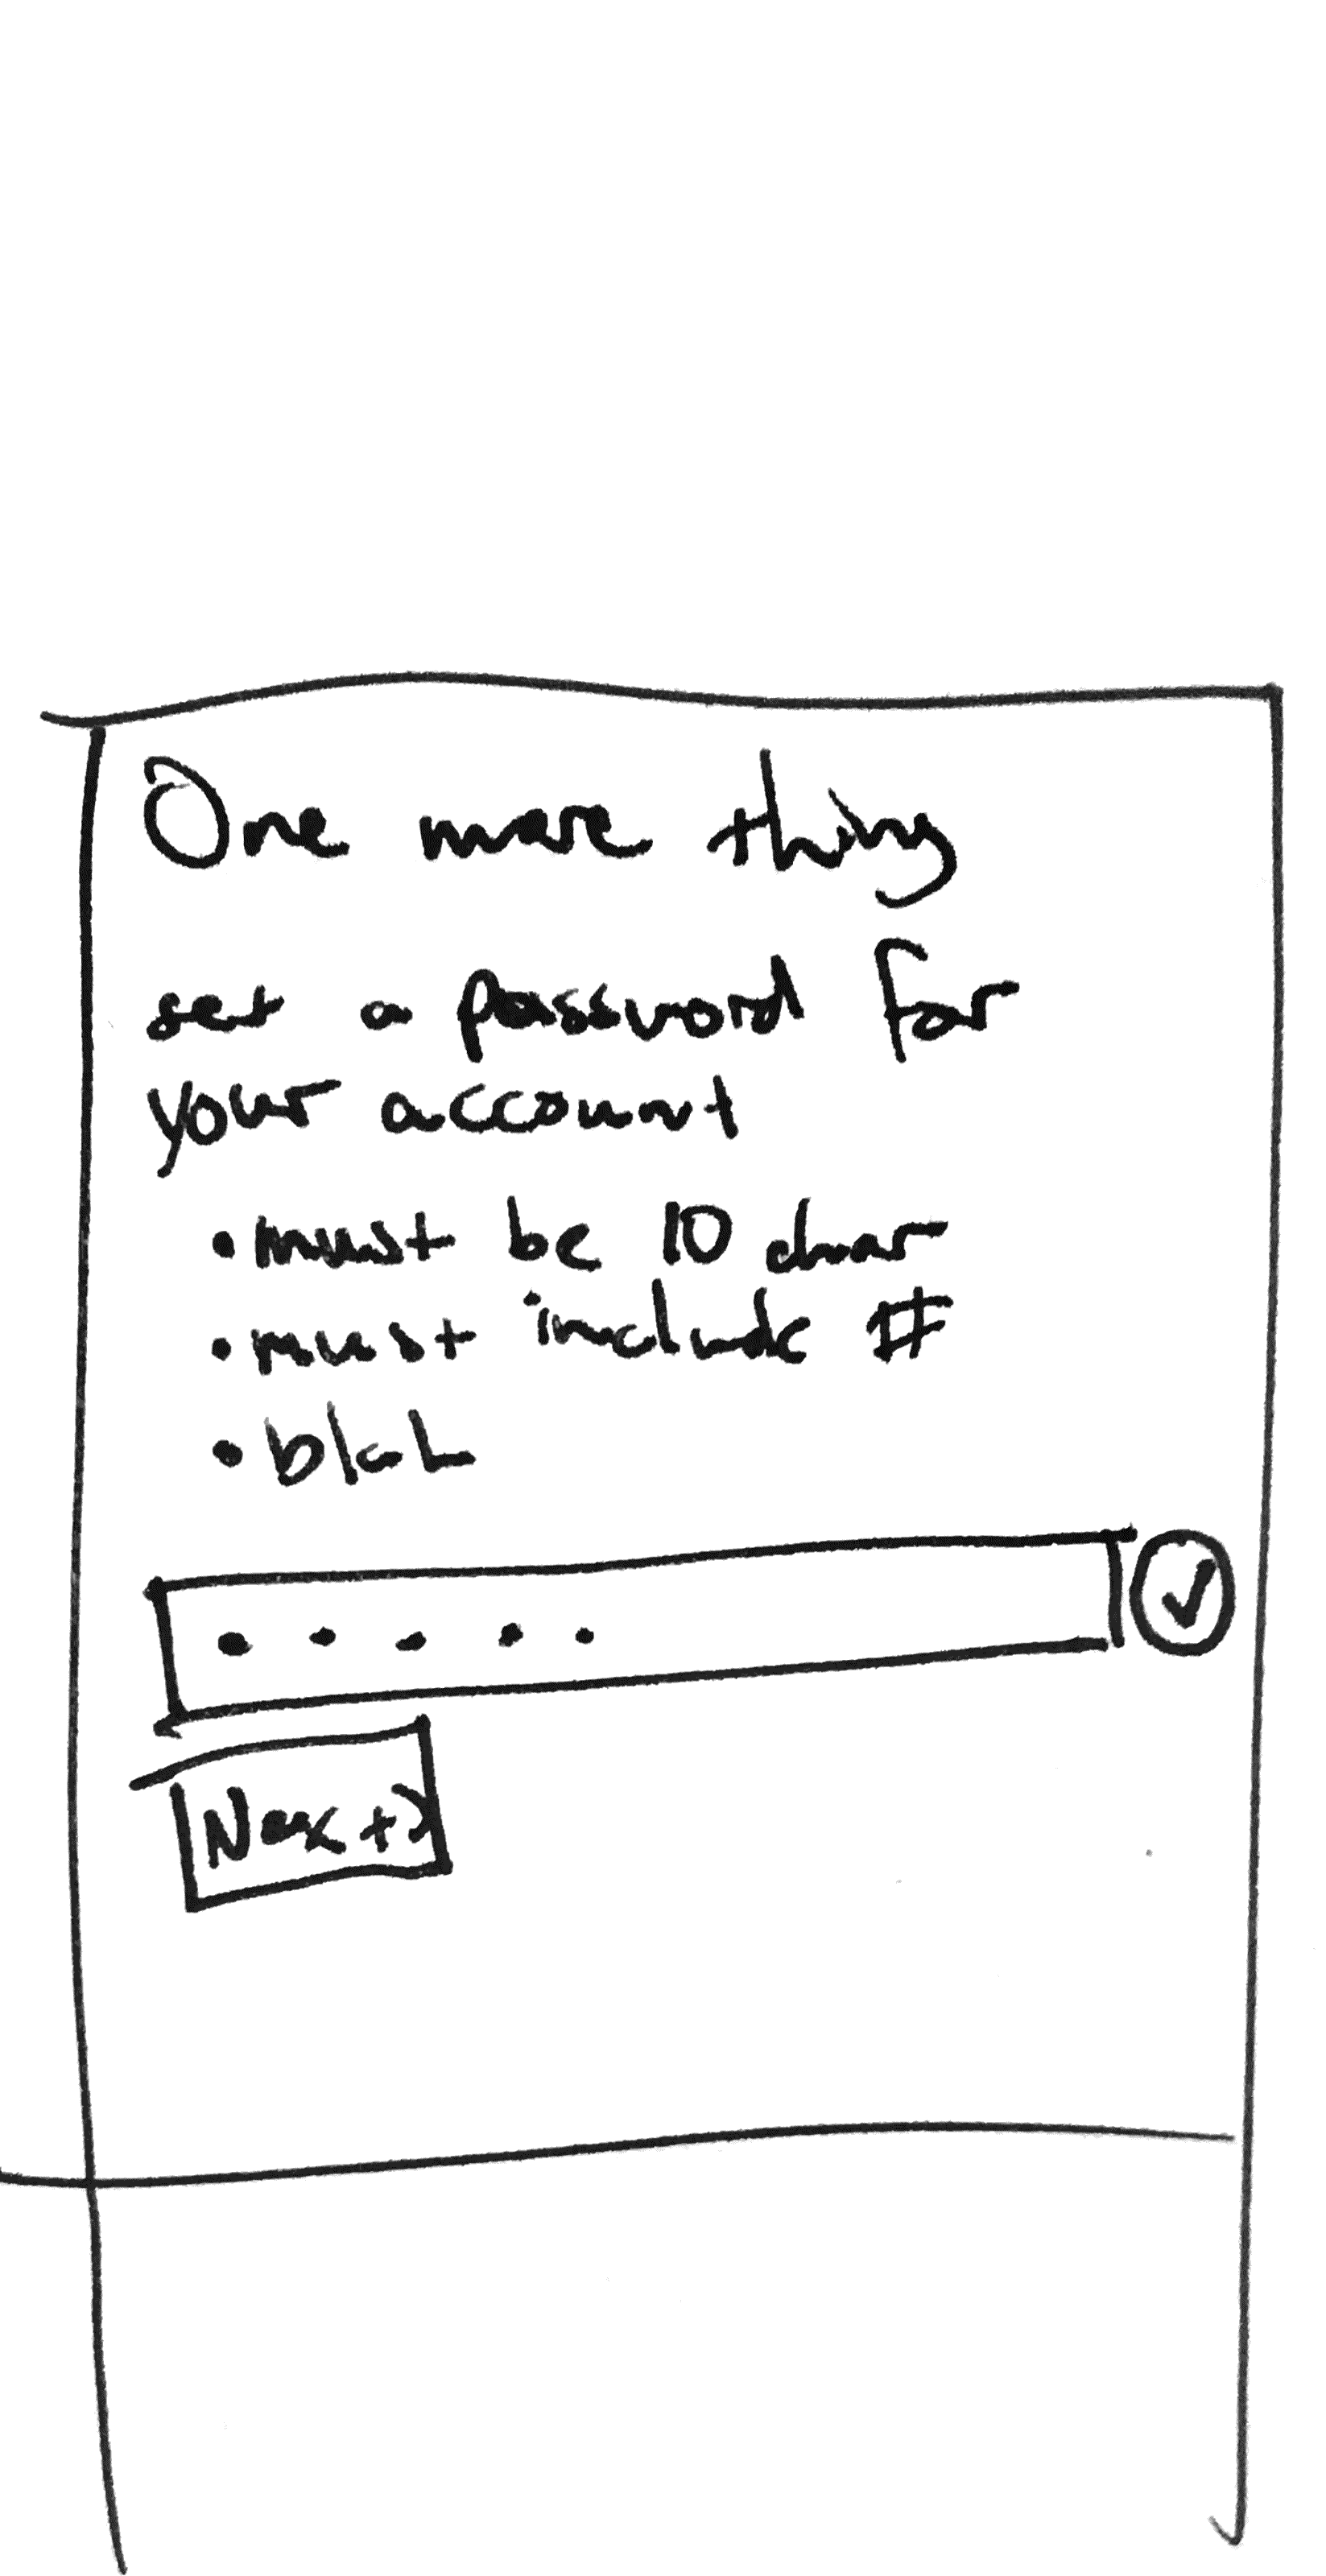 One more thing
set a password for
your account
• must be 10 char
• must include #
• blah
• • • • •
Next >